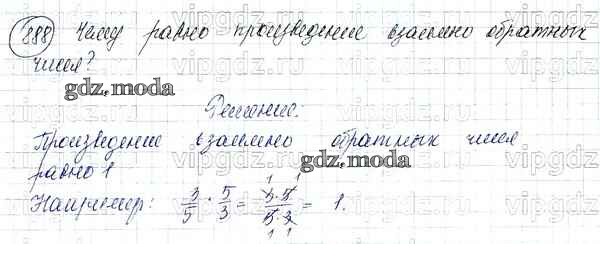 888 Чему равно произведение взаимно обратных
чисел?
gdz.moda
Решение.
Произведение взаимно обратных чисел
равно 1
gdz.moda
Например: 3/5 · 5/3 = 3·5/5·3 = 1.